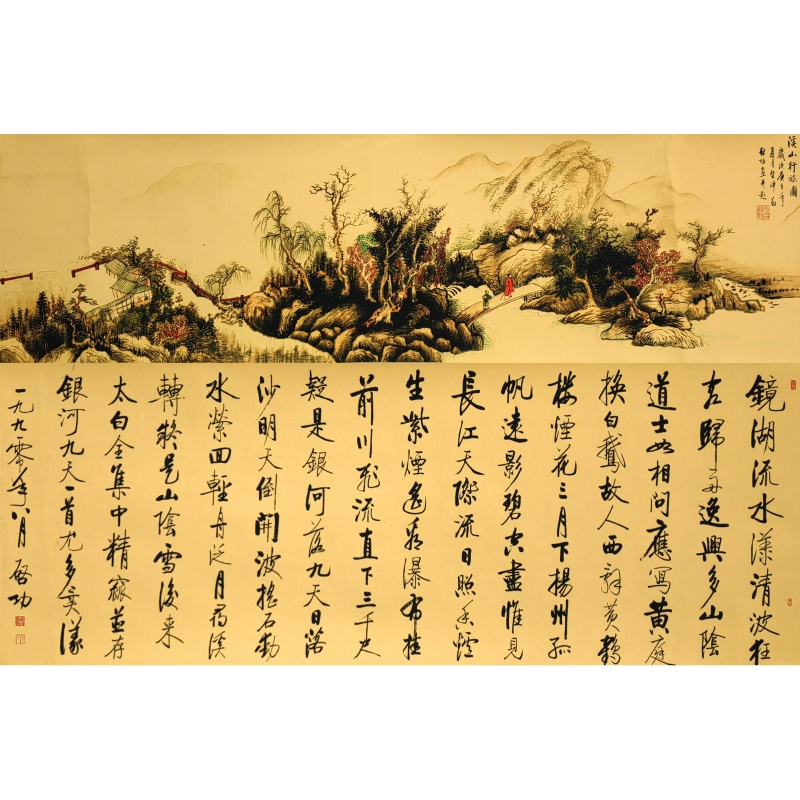 溪山行旅圖
歲次庚午年
夏月
啟功畫并題
鏡湖流水漾清波狂
客歸舟逸興多山陰
道士如相問應寫黃庭
換白鵝故人西辭黃鶴
樓煙花三月下揚州孤
帆遠影碧空盡惟見
長江天際流日照香爐
生紫煙遙看瀑布挂
前川飛流直下三千尺
疑是銀河落九天日落
沙明天倒開波搖石動
水縈回輕舟泛月尋溪
轉疑是山陰雪後來
太白全集中精並存
銀河九天一首尤多異漾
一九九零年八月 啟功